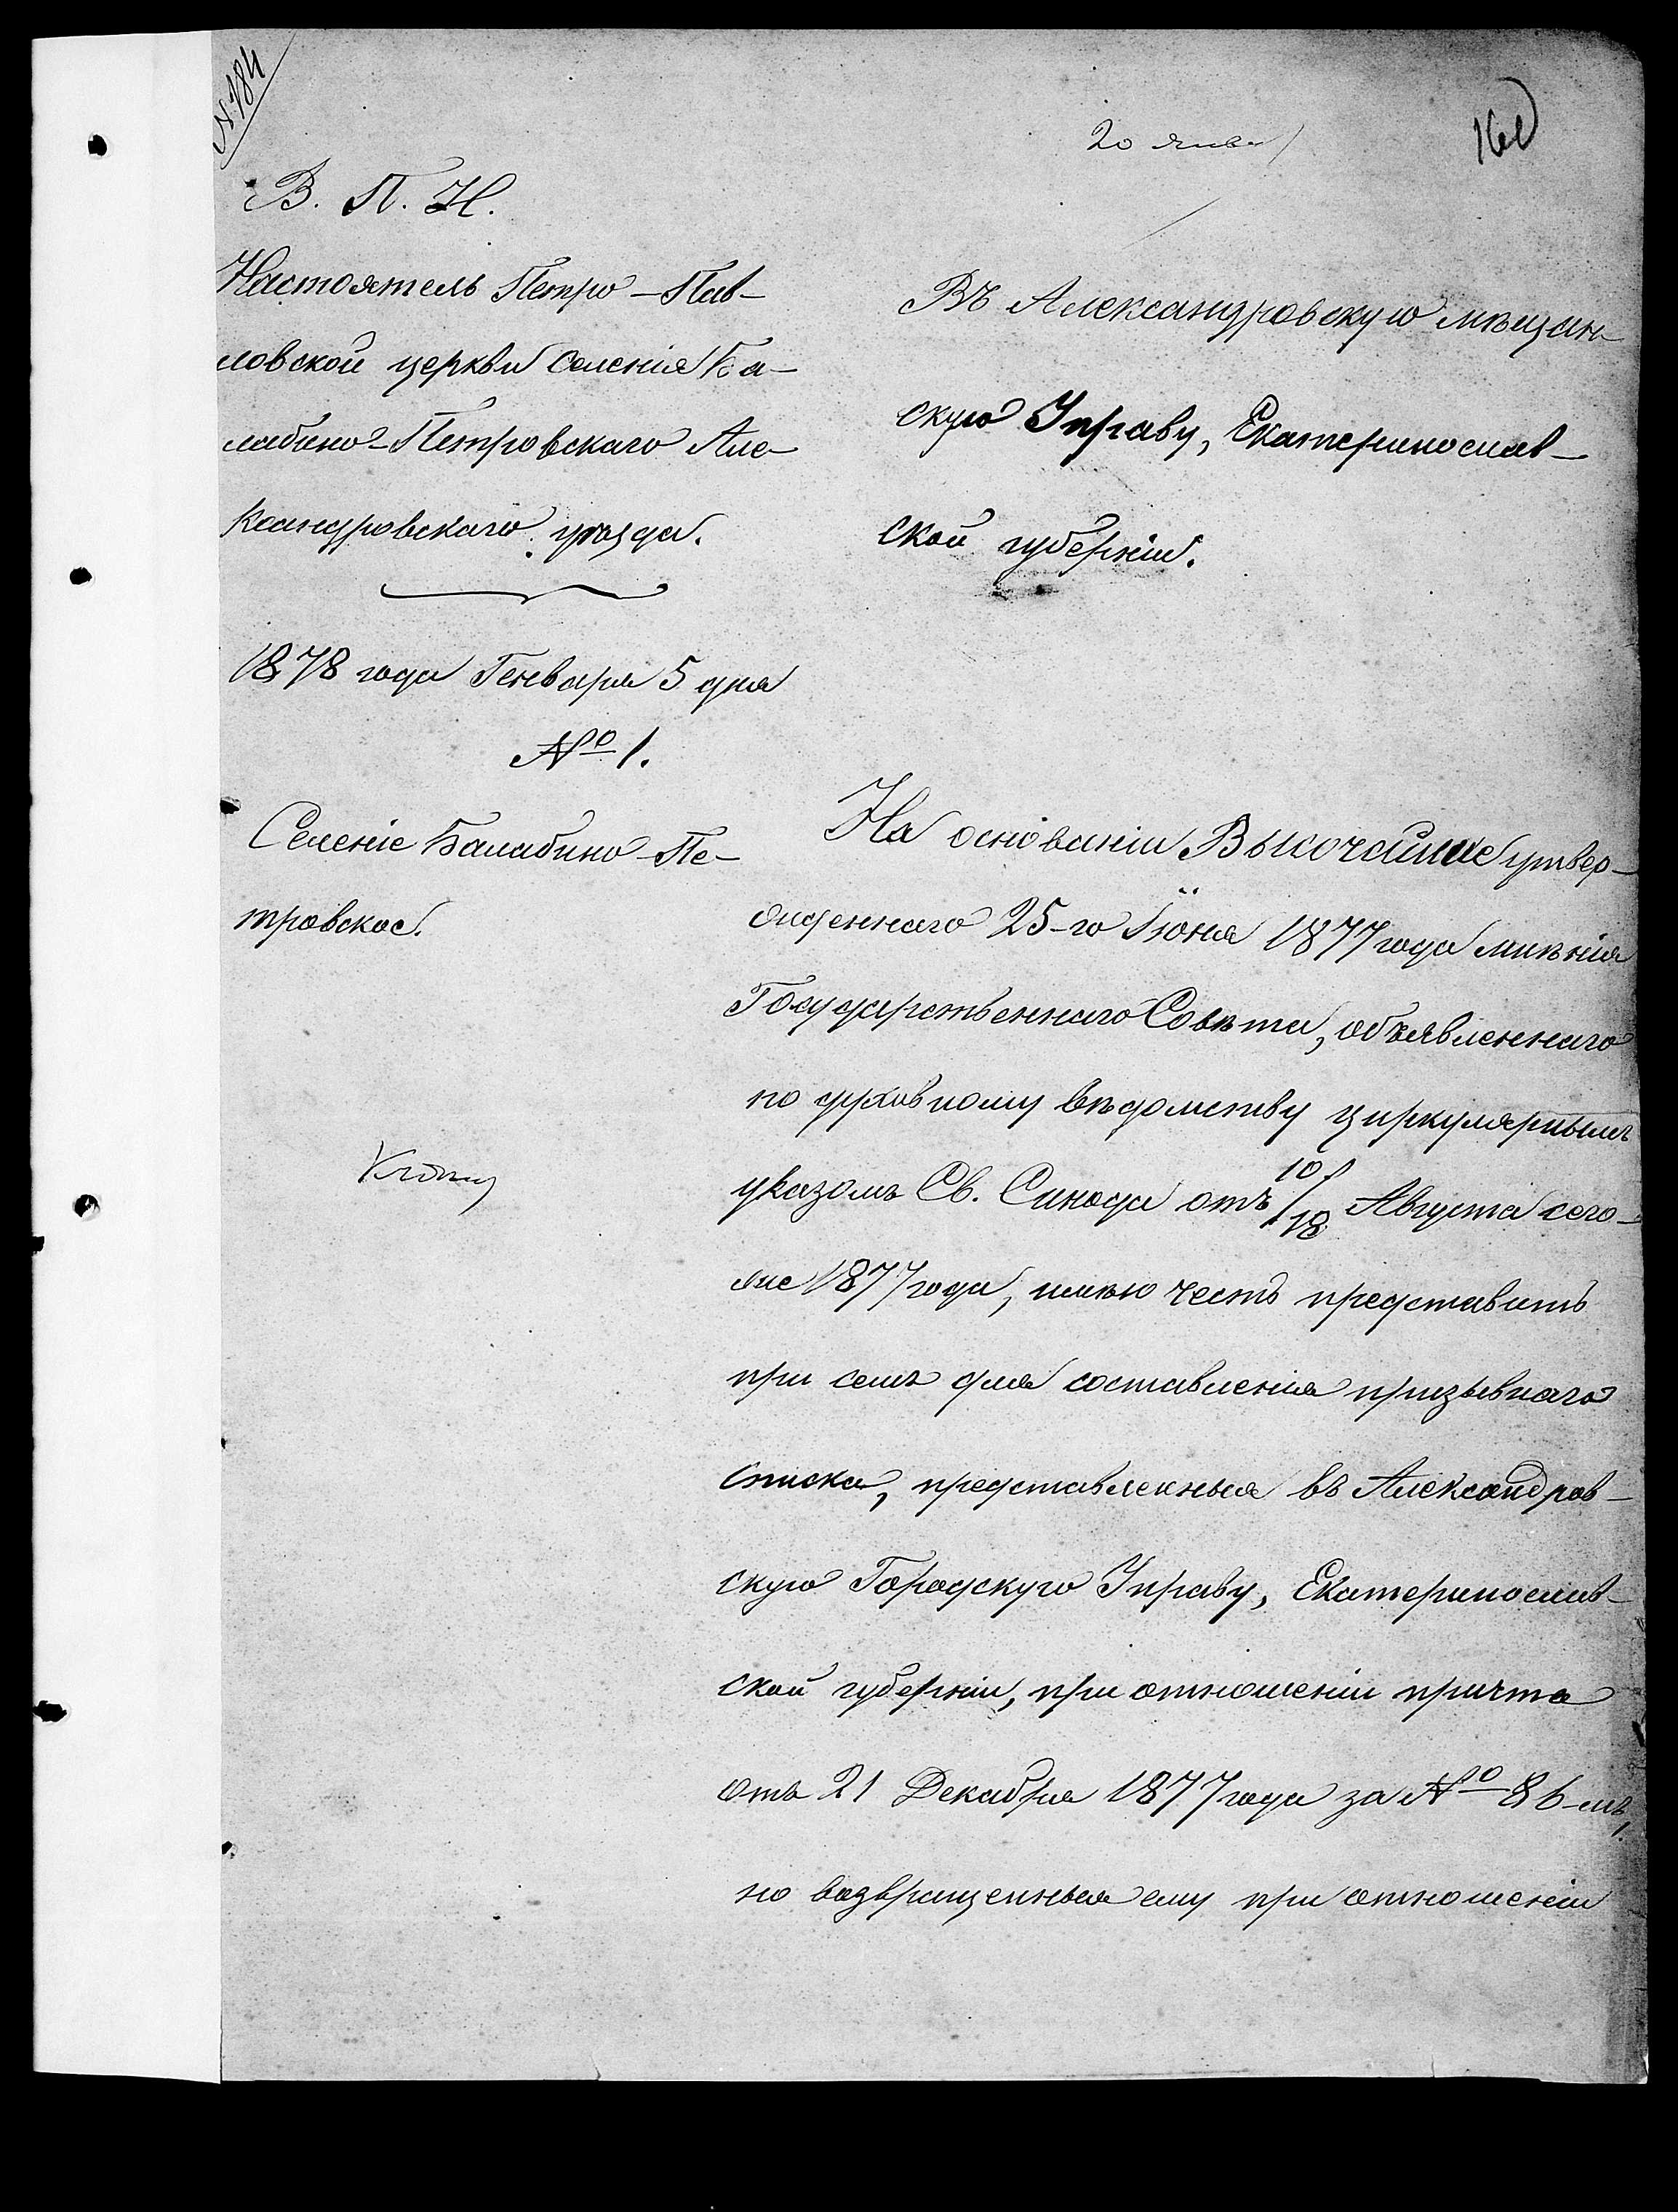 № 184
20 Янва
В. П. Н.
Настоятель Петро-Пав-
ловской церкви селенія Ба-
лабино-Петровскаго Але-
ксандровскаго уѣзда.
1878 года Генваря 5 дня
№ 1.
Селеніе Балабино-Пе-
тровское.
Въ Александровскую мѣщан-
скую Управу, Екатеринослав-
ской губерніи.
На основаніи Высочайше утвер-
жденнаго 25-го Іюня 1877 года мнѣнія
Государственнаго Совѣта, объявленнаго
по духовному вѣдомству циркулярнымъ
указомъ Св. Синода отъ 10/18 Августа сего-
же 1877 года, имѣю честь представить
при семъ для составленія призывнаго
списка, представленныя въ Александров-
скую Городскую Управу, Екатеринослав-
ской губерніи, при отношеніи причта
отъ 21 Декабря 1877 года за № 86-мъ,
но возвращенныя ему при отношеніи